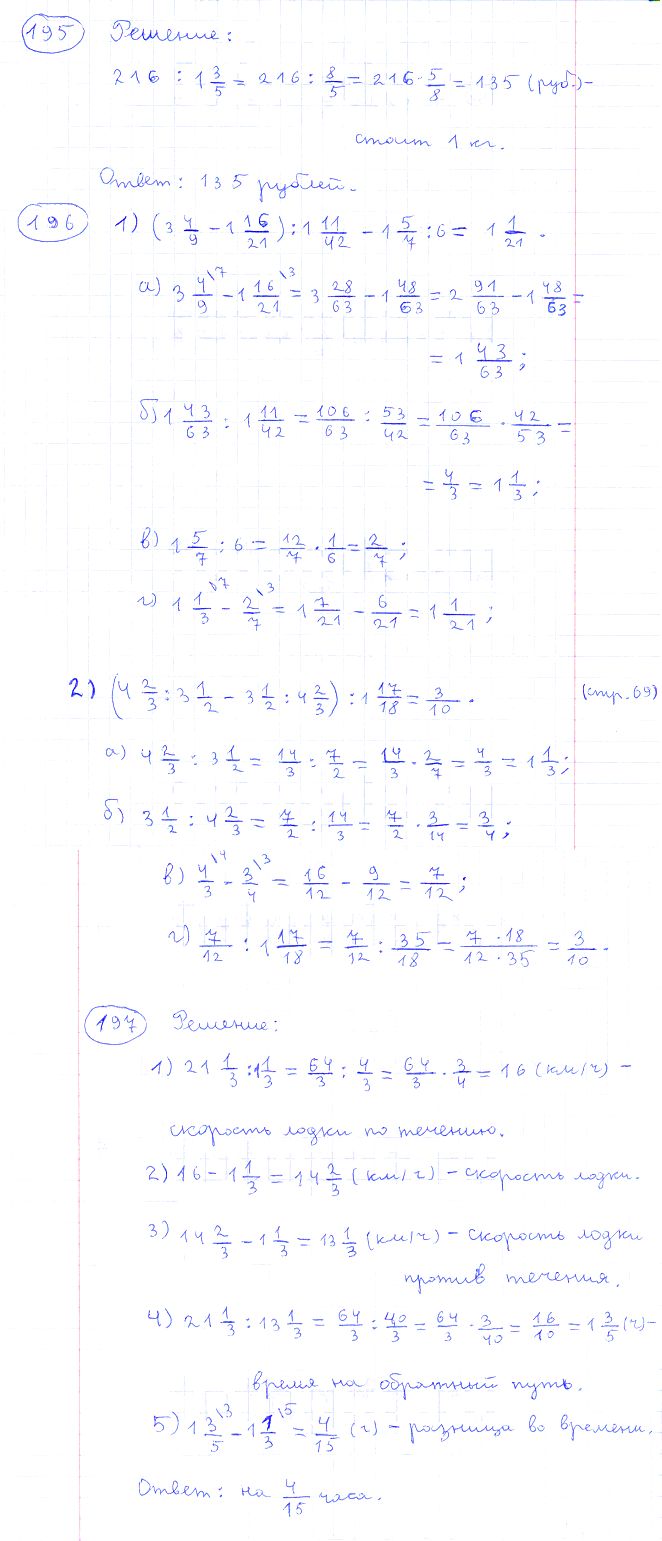 195 Решение:
216 : 1 3/5 = 216 : 8/5 = 216 · 5/8 = 135 (руб.) –
стоит 1 кг.
Ответ: 135 рублей.
196 1) (3 4/9 – 1 16/21) : 1 11/42 – 1 5/7 : 6 = 1 1/21.
а) 3 4/9 \7 – 1 16/21 \3 = 3 28/63 – 1 48/63 = 2 91/63 – 1 48/63 =
= 1 43/63;
б) 1 43/63 : 1 11/42 = 106/63 : 53/42 = 106/63 · 42/53 =
= 4/3 = 1 1/3;
в) 1 5/7 : 6 = 12/7 · 1/6 = 2/7;
г) 1 1/3 \7 – 2/7 \3 = 1 7/21 – 6/21 = 1 1/21;
2) (4 2/3 : 3 1/2 – 3 1/2 : 4 2/3) : 1 17/18 = 3/10. (стр. 69)
а) 4 2/3 : 3 1/2 = 14/3 : 7/2 = 14/3 · 2/7 = 4/3 = 1 1/3;
б) 3 1/2 : 4 2/3 = 7/2 : 14/3 = 7/2 · 3/14 = 3/4;
в) 4/3 \4 – 3/4 \3 = 16/12 – 9/12 = 7/12;
г) 7/12 : 1 17/18 = 7/12 : 35/18 = 7 · 18/12 · 35 = 3/10.
197 Решение:
1) 21 1/3 : 1 1/3 = 64/3 : 4/3 = 64/3 · 3/4 = 16 (км/ч) –
скорость лодки по течению.
2) 16 – 1 1/3 = 14 2/3 (км/ч) – скорость лодки.
3) 14 2/3 – 1 1/3 = 13 1/3 (км/ч) – скорость лодки
против течения.
4) 21 1/3 : 13 1/3 = 64/3 : 40/3 = 64/3 · 3/40 = 16/10 = 1 3/5 (ч) –
время на обратный путь.
5) 1 3/5 \3 – 1 1/3 \5 = 4/15 (ч) – разница во времени.
Ответ: на 4/15 часа.